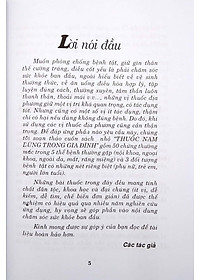 Lời nói đầu
Muốn phòng chống bệnh tật, giữ gìn thân
thể cường tráng, điều cốt yếu là phải chăm sóc
sức khỏe ban đầu, ngoài hiểu biết về vệ sinh
thường thức, về ăn uống, tập luyện, tập luyện
dưỡng sinh, thường xuyên, tắm thân thể, tập
luyện đúng cách, thoải mái v.v..., những vị thuốc địa
phương giữ một vị trí khá quan trọng, có tác dụng
tốt. Nhưng cũng có khi tác dụng của thuốc
không cao, nếu không dùng đúng bệnh. Do đó, khi
sử dụng các vị thuốc địa phương cũng cần thận
trọng. Để đáp ứng phần nào yêu cầu này, chúng
tôi soạn thảo cuốn sách nhỏ "THUỐC NAM
DÙNG TRONG GIA ĐÌNH" gồm 50 chứng thường
thuộc 5 bệnh thường gặp (nội khoa, ngoại
khoa, da, mắt, răng miệng) và 3 đối tượng
bệnh tật có những nét riêng biệt (phụ nữ, trẻ em,
người lớn tuổi).
Những bài thuốc trong đây đều mang tính
chất dân tộc, khoa học và đại chúng (ít vị, dễ
kiếm, dễ tìm, chế biến đơn giản) đã được
thể nghiệm có hiệu quả qua nhiều năm nghiên cứu
ứng dụng, hy vọng sẽ góp phần vào nội dung
chăm sóc sức khỏe ban đầu.
Kính mong được sự góp ý của bạn đọc để tài
liệu hoàn hảo hơn.
Các tác giả
5